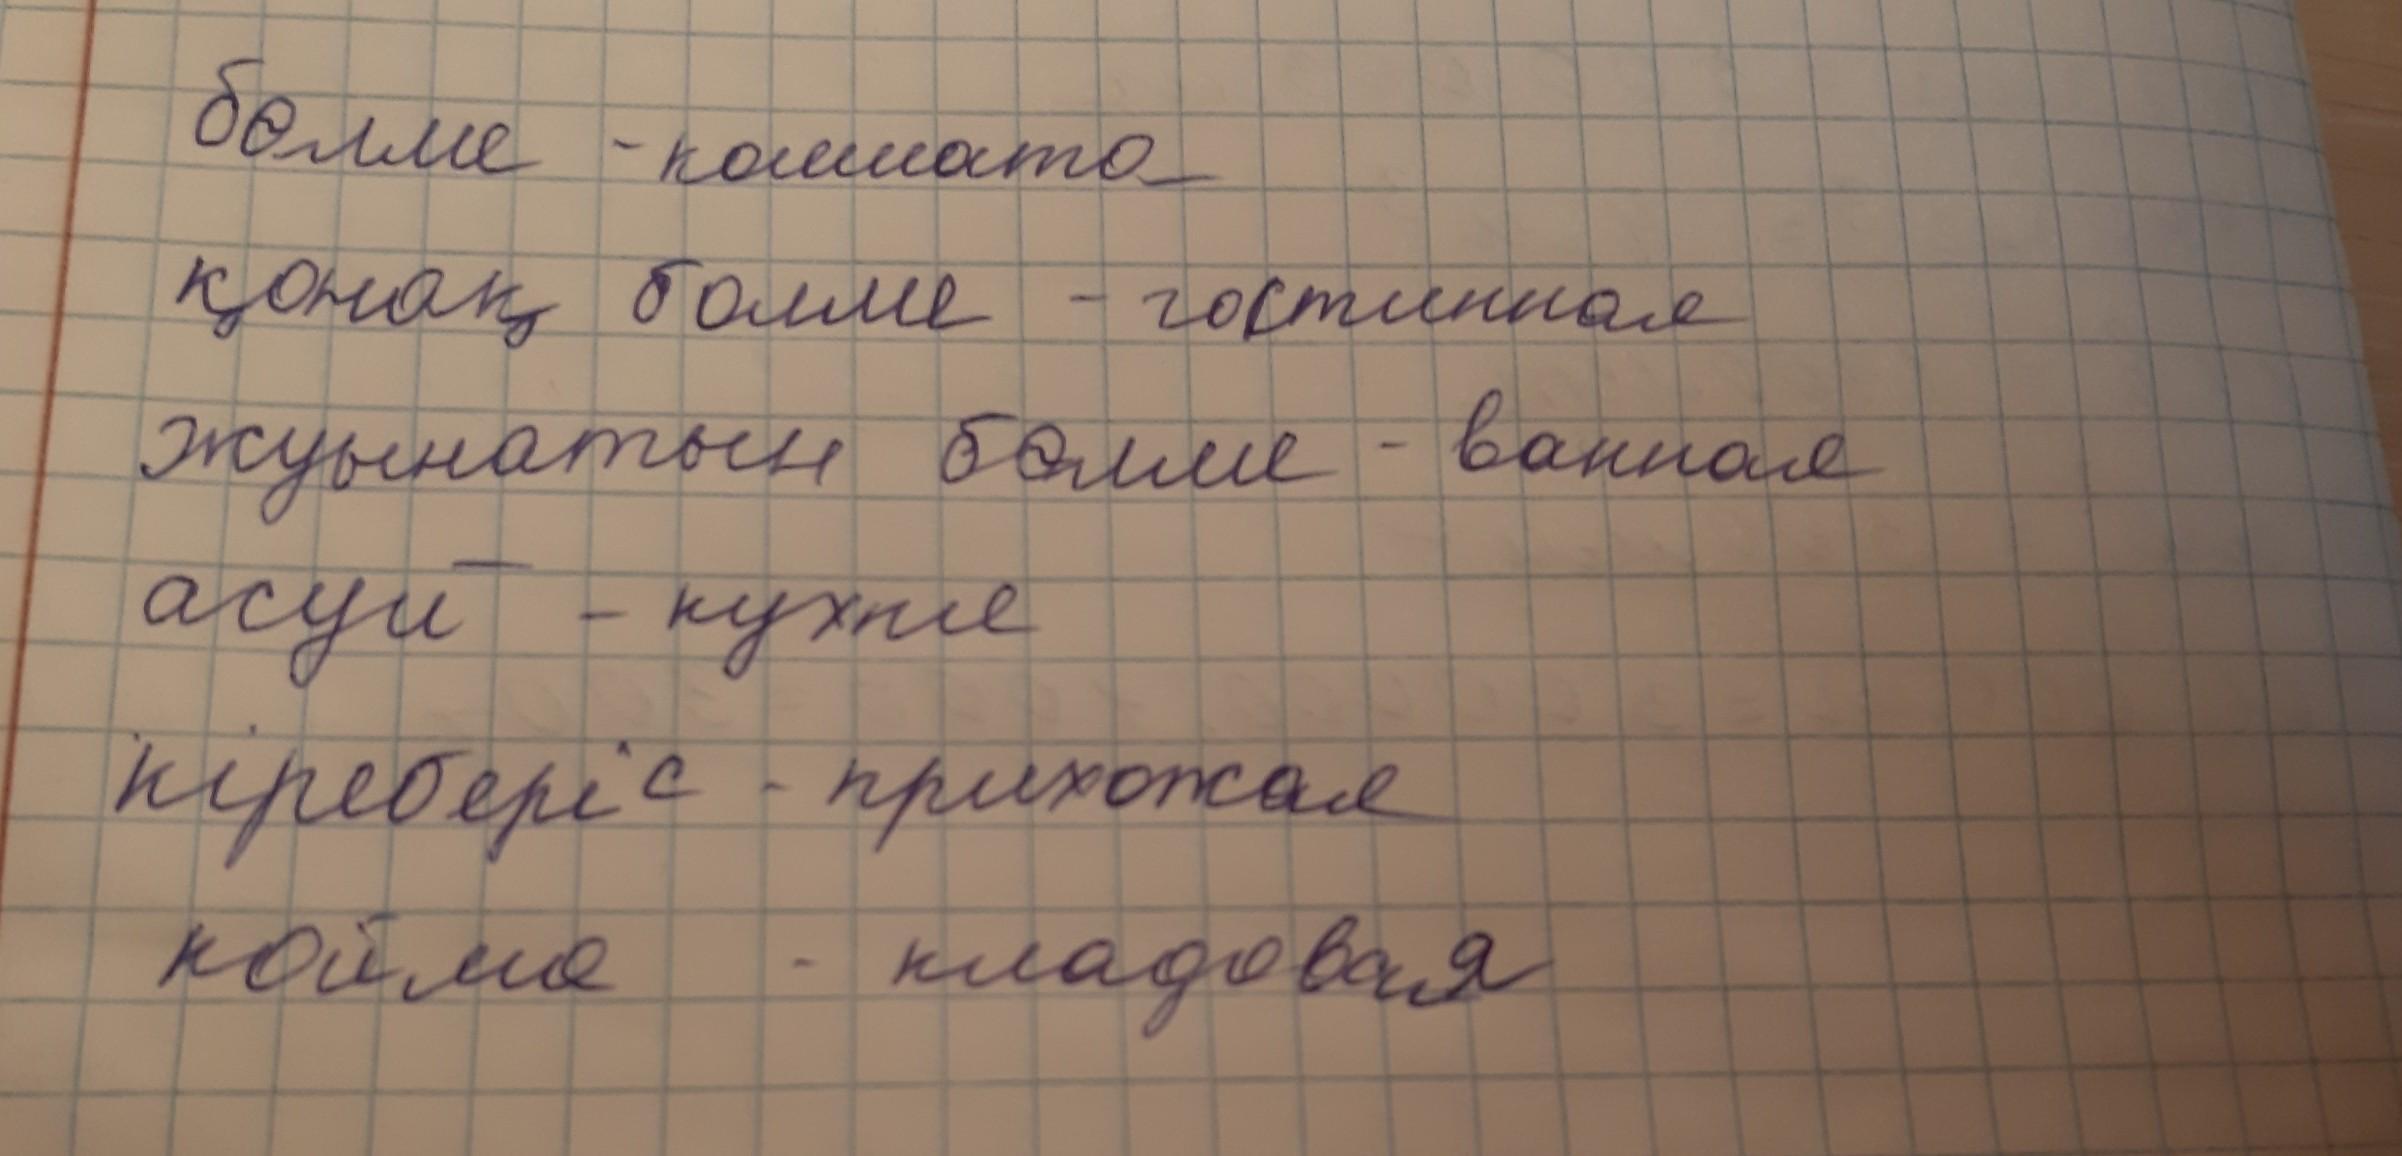 бөлме - комната
қонақ бөлме - гостинная
жуынатын бөлме - ванная
асуй - кухня
кіреберіс - прихожая
койма - кладовая